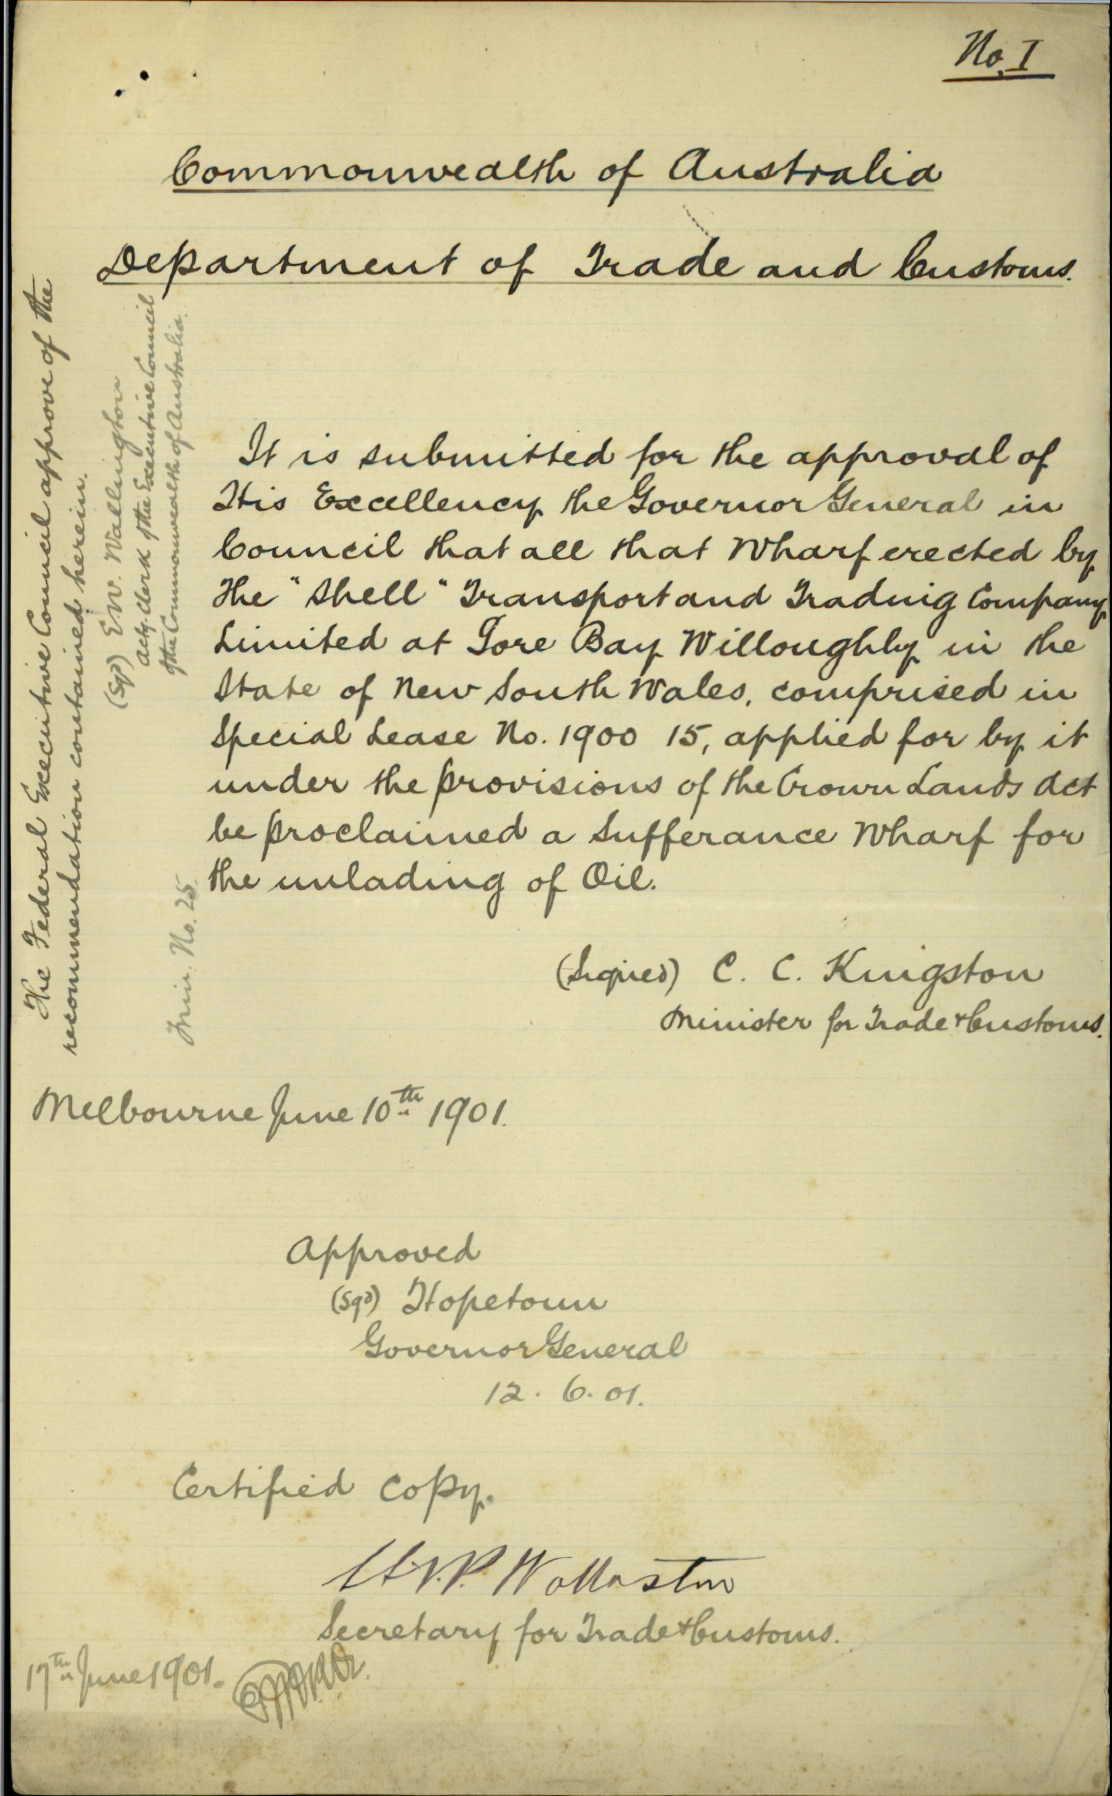 No. I
Commonwealth of Australia
Department of Trade and Customs.
It is submitted for the approval of
His Excellency the Governor General in
Council that all that Wharf erected by
the "Shell" Transport and Trading Company
Limited at Gore Bay Willoughby in the
State of New South Wales, comprised in
Special Lease No. 1900 15, applied for by it
under the provisions of the Crown Lands Act
be proclaimed a Sufferance Wharf for
the unlading of Oil.
(Signed) C. C. Kingston
Minister for Trade & Customs.
Melbourne June 10th 1901.
The Federal Executive Council approve of the
recommendation contained herein.
(Sgd) E.W. Wallington
Actg. Clerk of the Executive Council
of the Commonwealth of Australia.
Min. No. 25.
Approved
(Sgd) Hopetoun
Governor General
12. 6. 01.
Certified copy.
H.N.P. Wollaston
Secretary for Trade & Customs.
17th June 1901.